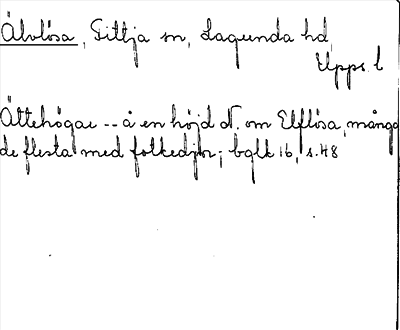 Älvlösa, Gittja sn, Lagunda hd,
Upps. l
Ättehögar -- å en höjd N. om Elflösa, många
de flesta med fotkedjor; bglk 16, s. 48